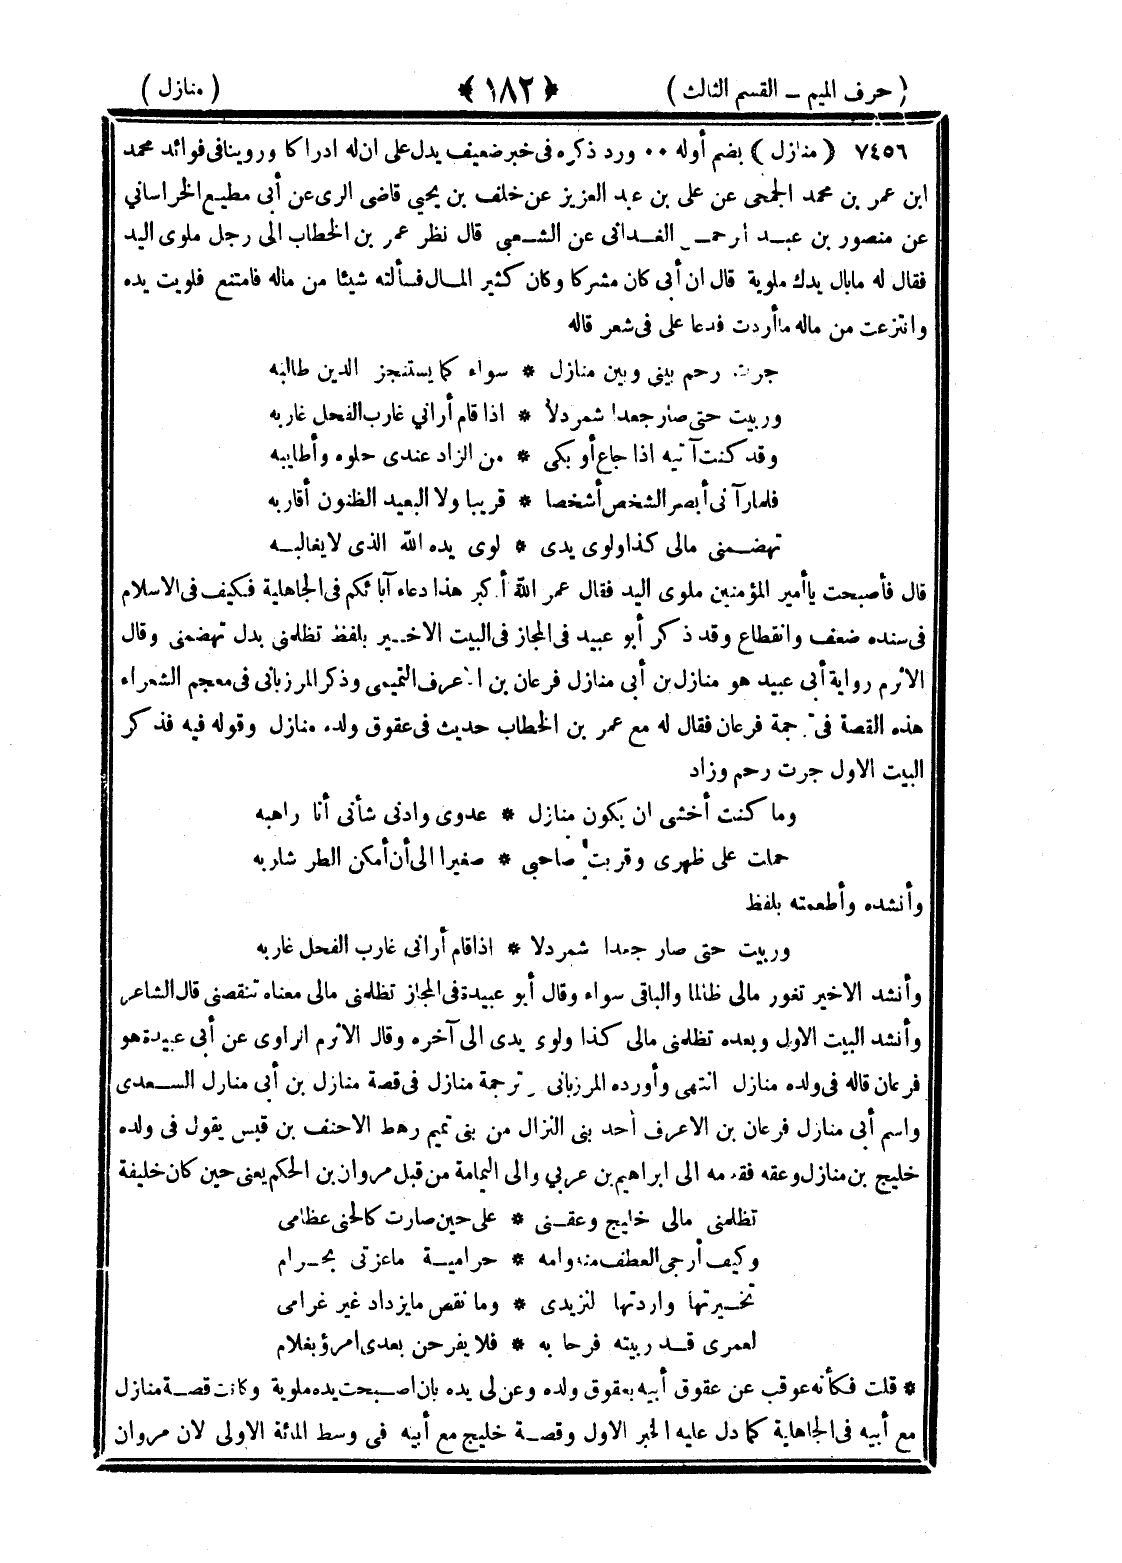 ( حرف الميم – القسم الثالث ) ﴿ ١٨٢ ﴾ ( منازل )
٧٤٥٦ ( منازل ) بضم أوله ٠٠ ورد ذكره فى خبر ضعيف يدل على ان له ادراكا وروينا فى فوائد محمد
ابن عمر بن محمد الجمحى عن على بن عبد العزيز عن خلف بن يحيى قاضى الرى عن أبى مطيع الخراسانى
عن منصور بن عبد الرحمن الغدانى عن الشعبى قال نظر عمر بن الخطاب الى رجل ملوى اليد
فقال له مابال يدك ملوية قال ان أبى كان مشركا وكان كثير المال فسألته شيئا من ماله فامتنع فلويت يده
وانتزعت من ماله ماأردت فدعا على فى شعر قاله
جرت رحم بينى وبين منازل * سواء كما يستنجز الدين طالبه
وربيت حتى صار جعدا شمردلا * اذا قام أراني غارب الفحل غاربه
وقد كنت آتيه اذا جاع أو بكى * من الزاد عندى حلوه وأطايبه
فلمارآنى أبصر الشخص أشخصا * قريبا ولا البعيد الظنون أقاربه
تهضمنى مالى كذا ولوى يدى * لوى يده الله الذى لا يغالبه
قال فأصبحت ياأمير المؤمنين ملوى اليد فقال عمر الله أكبر هذا دعاء آبائكم فى الجاهلية فكيف فى الاسلام
فى سنده ضعف وانقطاع وقد ذكر أبو عبيد فى المجاز فى البيت الاخير بلفظ تظلمنى بدل تهضمنى وقال
الاثرم رواية أبى عبيد هو منازل بن أبى منازل فرعان بن الاعرف التميمى وذكر المرزبانى فى معجم الشعراء
هذه القصة فى ترجمة فرعان فقال له مع عمر بن الخطاب حديث فى عقوق ولده منازل وقوله فيه فذكر
البيت الاول جرت رحم وزاد
وما كنت أخشى ان يكون منازل * عدوى وادنى شأنى أنا راهبه
حملت على ظهرى وقربت صاحبي * صغيرا الى أن أمكن الطر شاربه
وأنشده وأطعمته بلفظ
وربيت حتى صار جعدا شمردلا * اذا قام أرانى غارب الفحل غاربه
وأنشد الاخير تغور مالى ظالما والباقى سواء وقال أبو عبيدة فى المجاز تظلمنى مالى معناه تنقصنى قال الشاعر
وأنشد البيت الاول وبعده تظلمنى مالى كذا ولوى يدى الى آخره وقال الاثرم الراوى عن أبى عبيدة هو
فرعان قاله فى ولده منازل انتهى وأورده المرزبانى ترجمة منازل فى قصة منازل بن أبى منازل السعدى
واسم أبى منازل فرعان بن الاعرف أحد بنى النزال من بنى تميم رهط الاحنف بن قيس يقول فى ولده
خليج بن منازل وعقه فقدمه الى ابراهيم بن عربي والى اليمامة من قبل مروان بن الحكم يعنى حين كان خليفة
تظلمنى مالى خليج وعقنى * على حين صارت كالحنى عظامى
وكيف أرجى العطف منه وامه * حرامية ماغرتى بحرام
تخيرتها وازددتها لنزيدى * وما نقص مايزداد غير غرامى
لعمرى قد ربيته فرحا به * فلا يفرحن بعدى امرؤ بغلام
* قلت فكأنه عوقب عن عقوق أبيه بعقوق ولده وعن لى يده بان اصبحت يده ملوية وكانت قصة منازل
مع أبيه فى الجاهلية كما دل عليه الخبر الاول وقصة خليج مع أبيه فى وسط المائة الاولى لان مروان